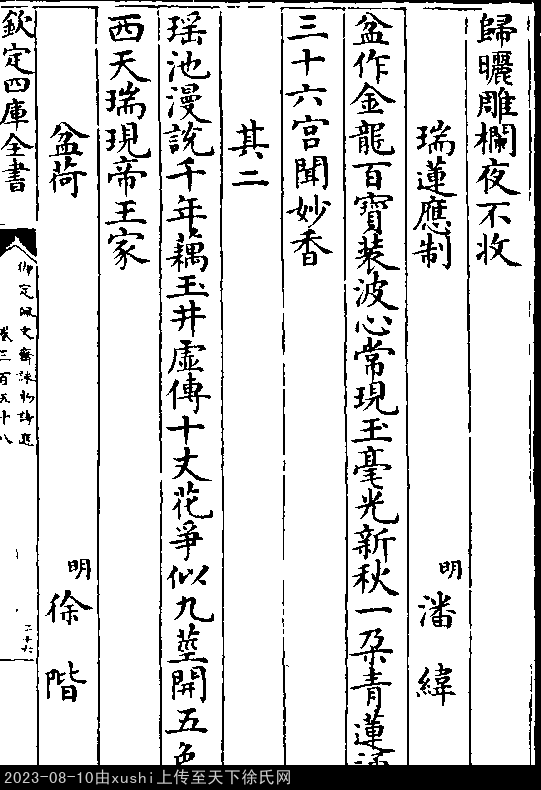 歸曬雕欄夜不收
瑞蓮應制
明
潘緯
盆作金龍百寶裝波心常現玉毫光新秋一朶青蓮
三十六宮聞妙香
其二
瑶池漫說千年藕玉井虛傳十丈花爭似九莖開五色
西天瑞現帝王家
盆荷
明
徐階
欽定四庫全書
御定佩文齋詠物詩選
卷三百五十八
二十六
2023-08-10由xushi上传至天下徐氏网